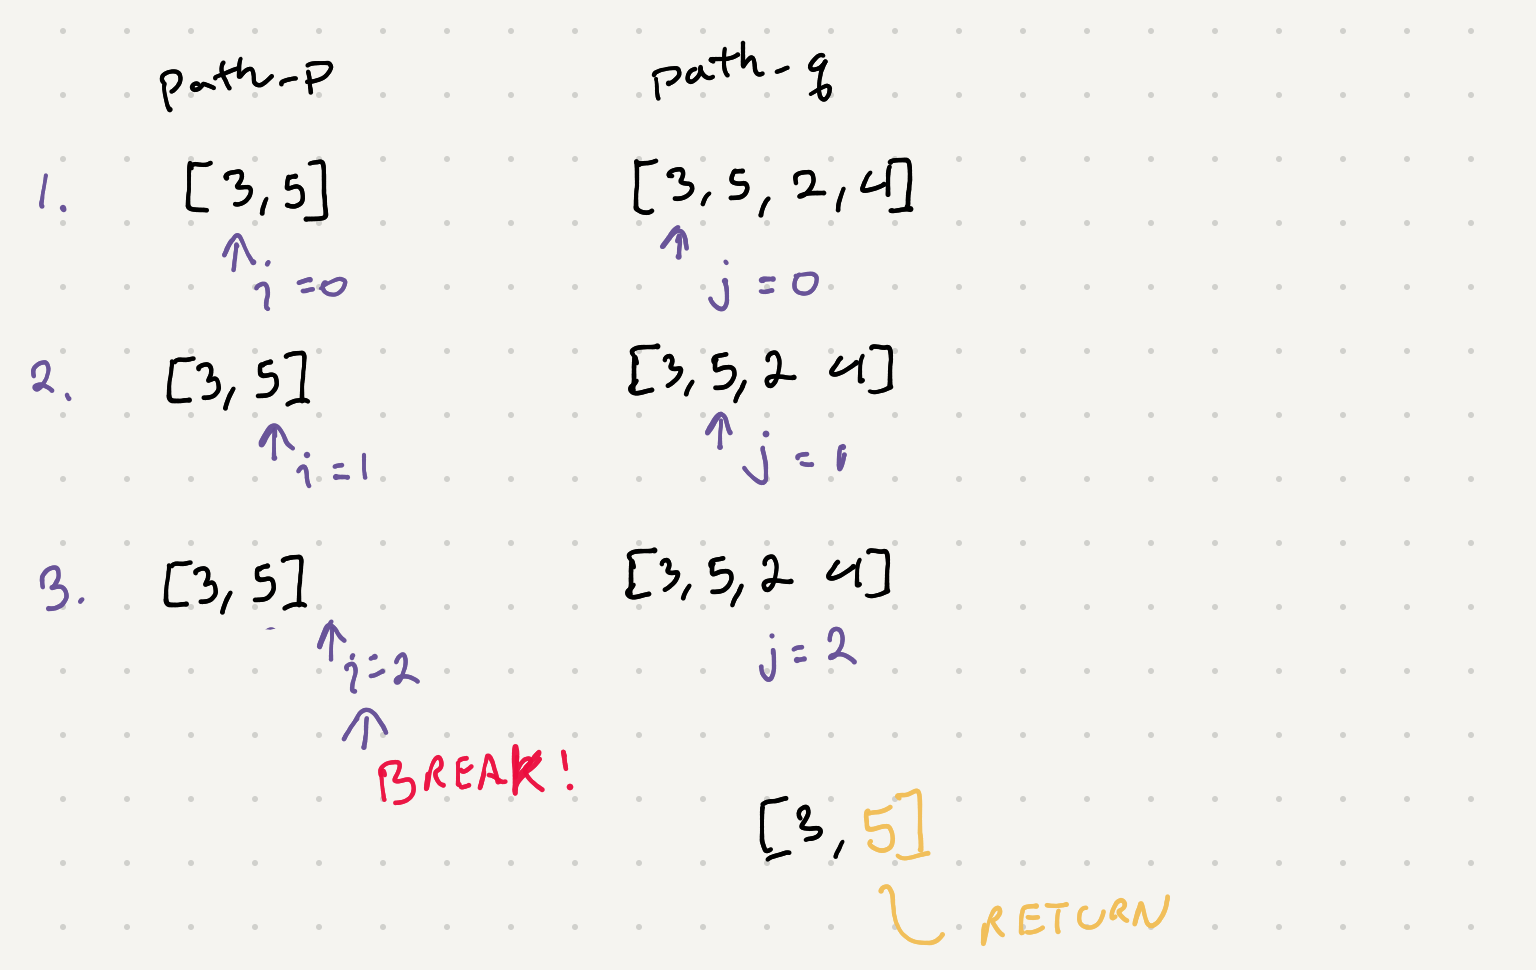 path-p path-q
1. [3, 5] [3, 5, 2, 4]
i=0 j=0
2. [3, 5] [3, 5, 2 4]
i=1 j=1
3. [3, 5] [3, 5, 2 4]
i=2 j=2
BREAK!
[3, 5]
RETURN